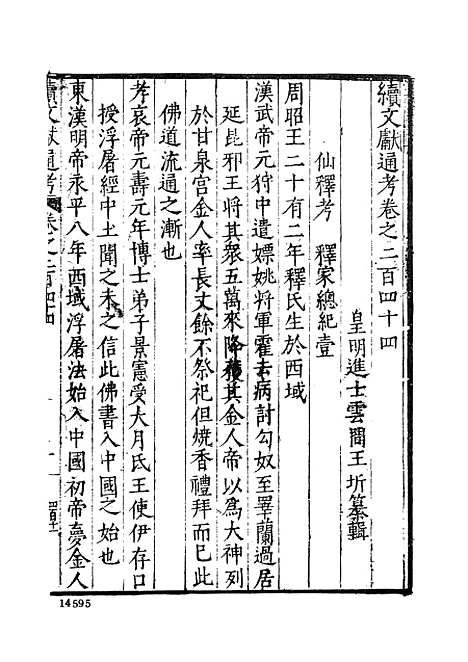 續文獻通考卷之二百四十四
皇明進士雲間王圻纂輯
仙釋考 釋家總紀壹
周昭王二十有二年釋氏生於西域
漢武帝元狩中遣嫖姚將軍霍去病討匈奴至皋蘭過居
延昆邪王將其衆五萬來降獲其金人帝以爲大神列
於甘泉宫金人率長丈餘不祭祀但燒香禮拜而已此
佛道流通之漸也
孝哀帝元壽元年博士弟子景憲受大月氏王使伊存口
授浮屠經中土聞之未之信此佛書入中國之始也
東漢明帝永平八年西域浮屠法始入中國初帝夢金人
續文獻通考 卷之二百四十四
14595